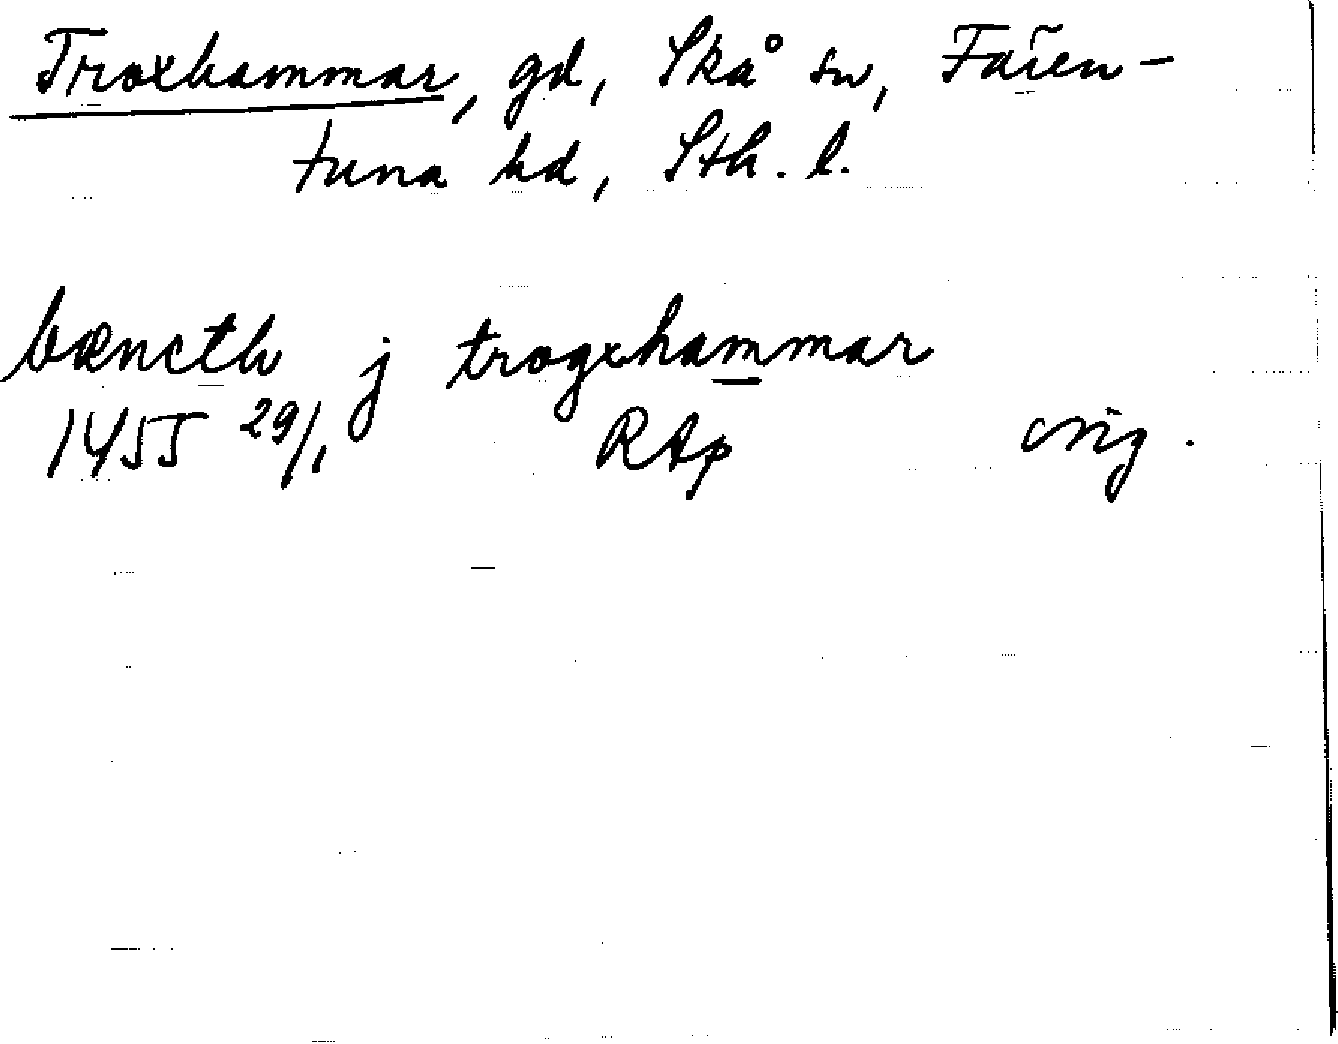 Troxhammar, gd, Skå sn, Fären-
tuna hd, Sth. l.
bæncth j trogxhammar
1455 29/1 RAp orig.